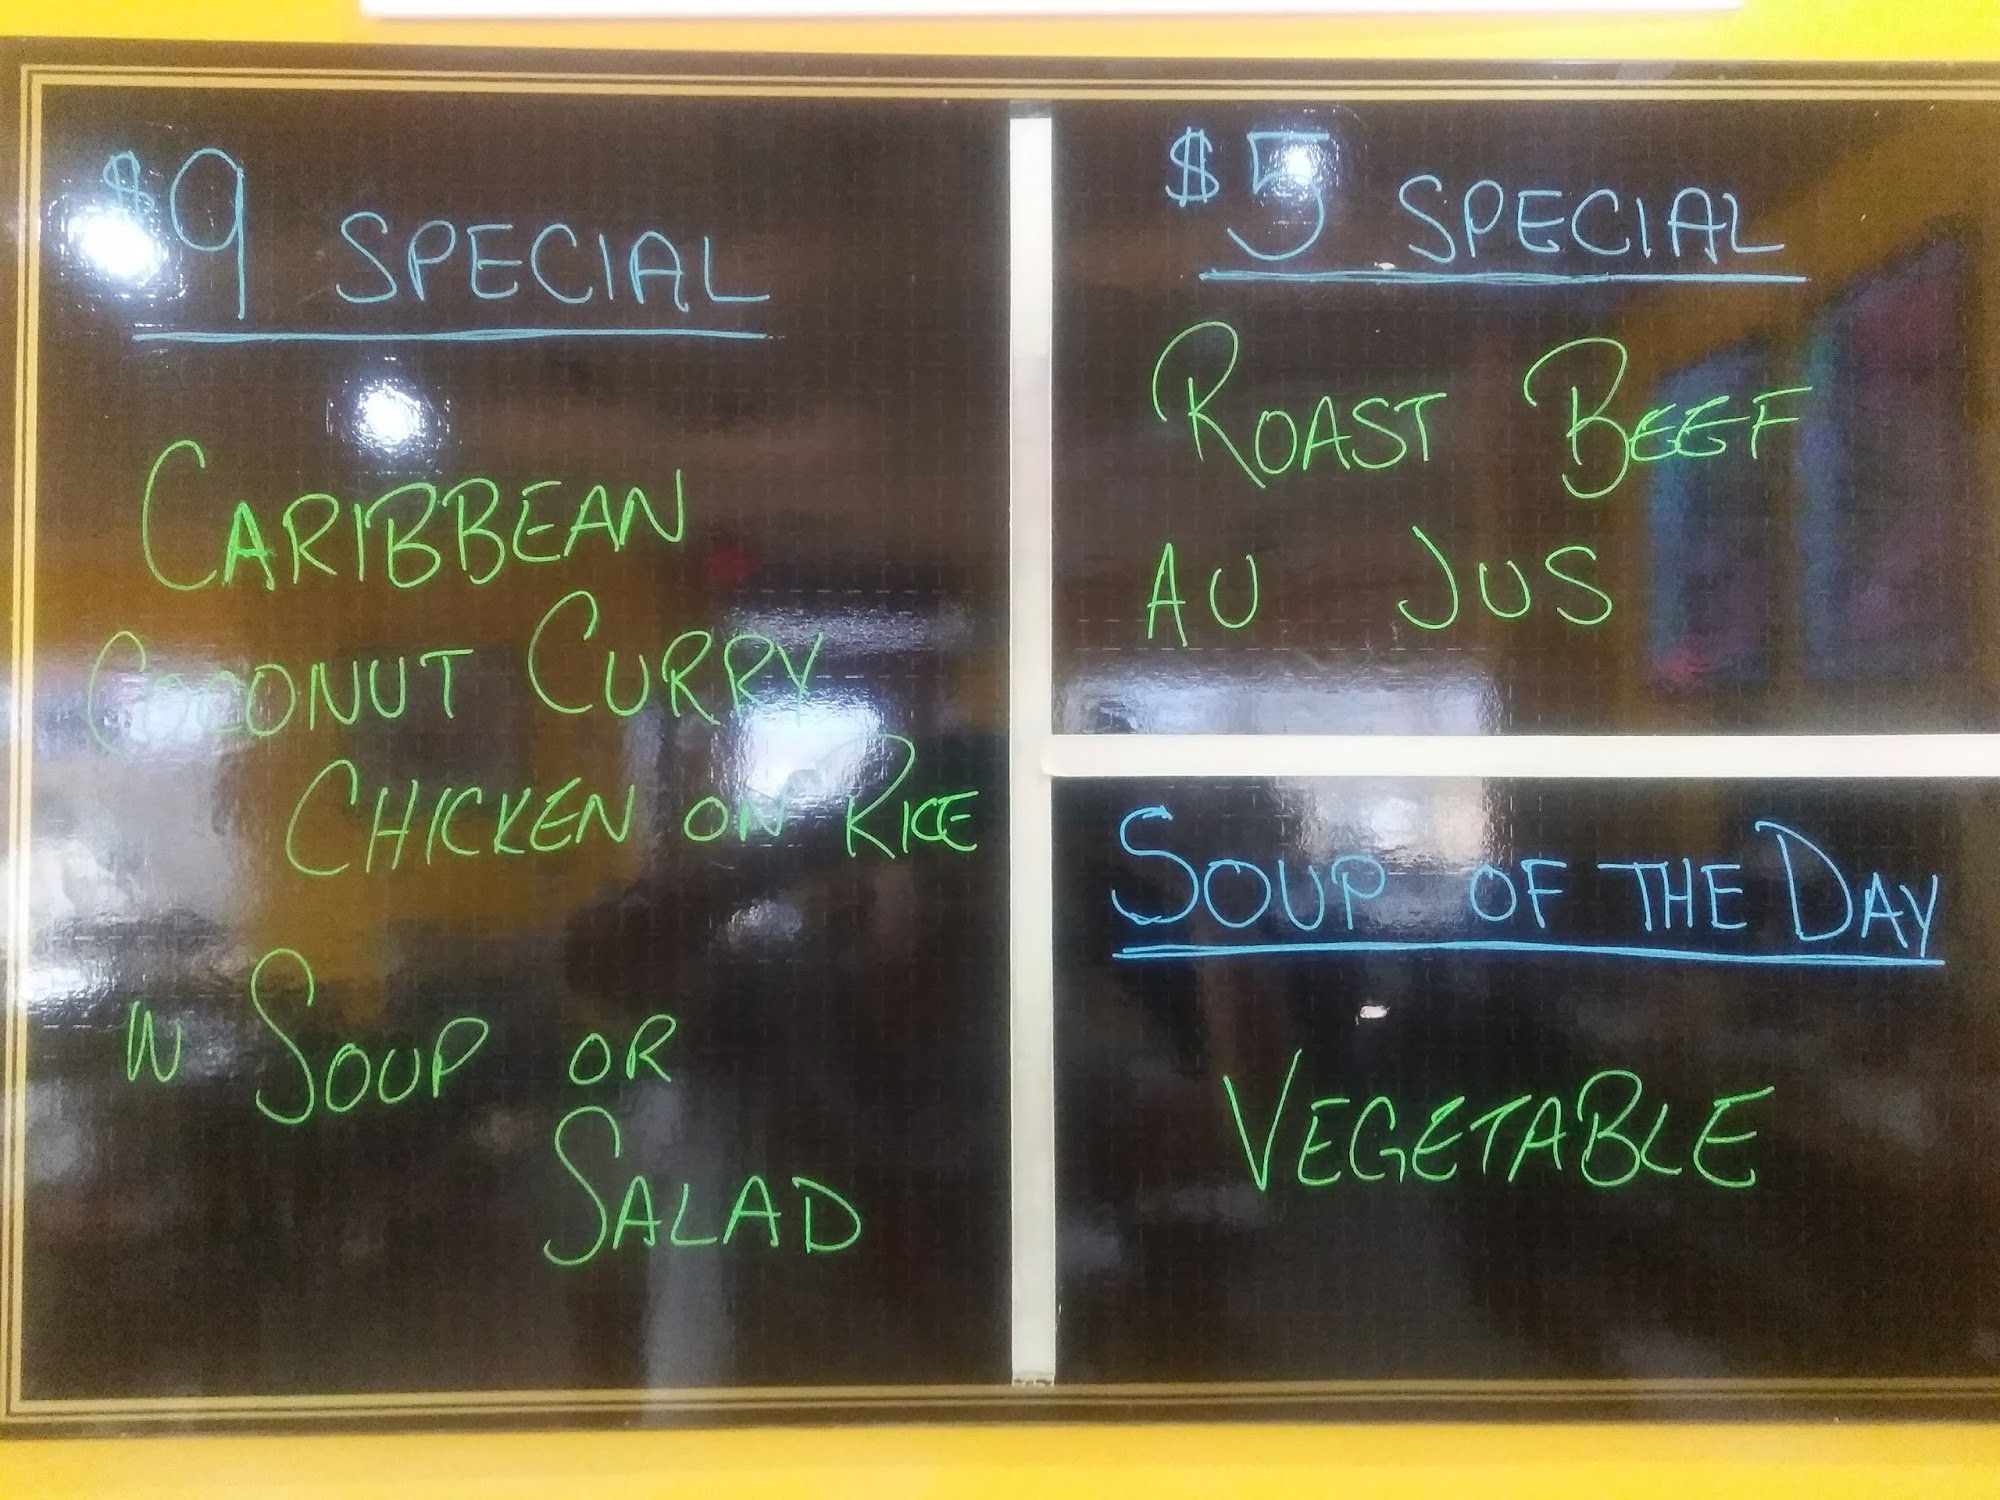 $9 SPECIAL
CARIBBEAN
COCONUT CURRY
CHICKEN ON RICE
W SOUP OR
SALAD
$5 SPECIAL
ROAST BEEF
AU JUS
SOUP OF THE DAY
VEGETABLE